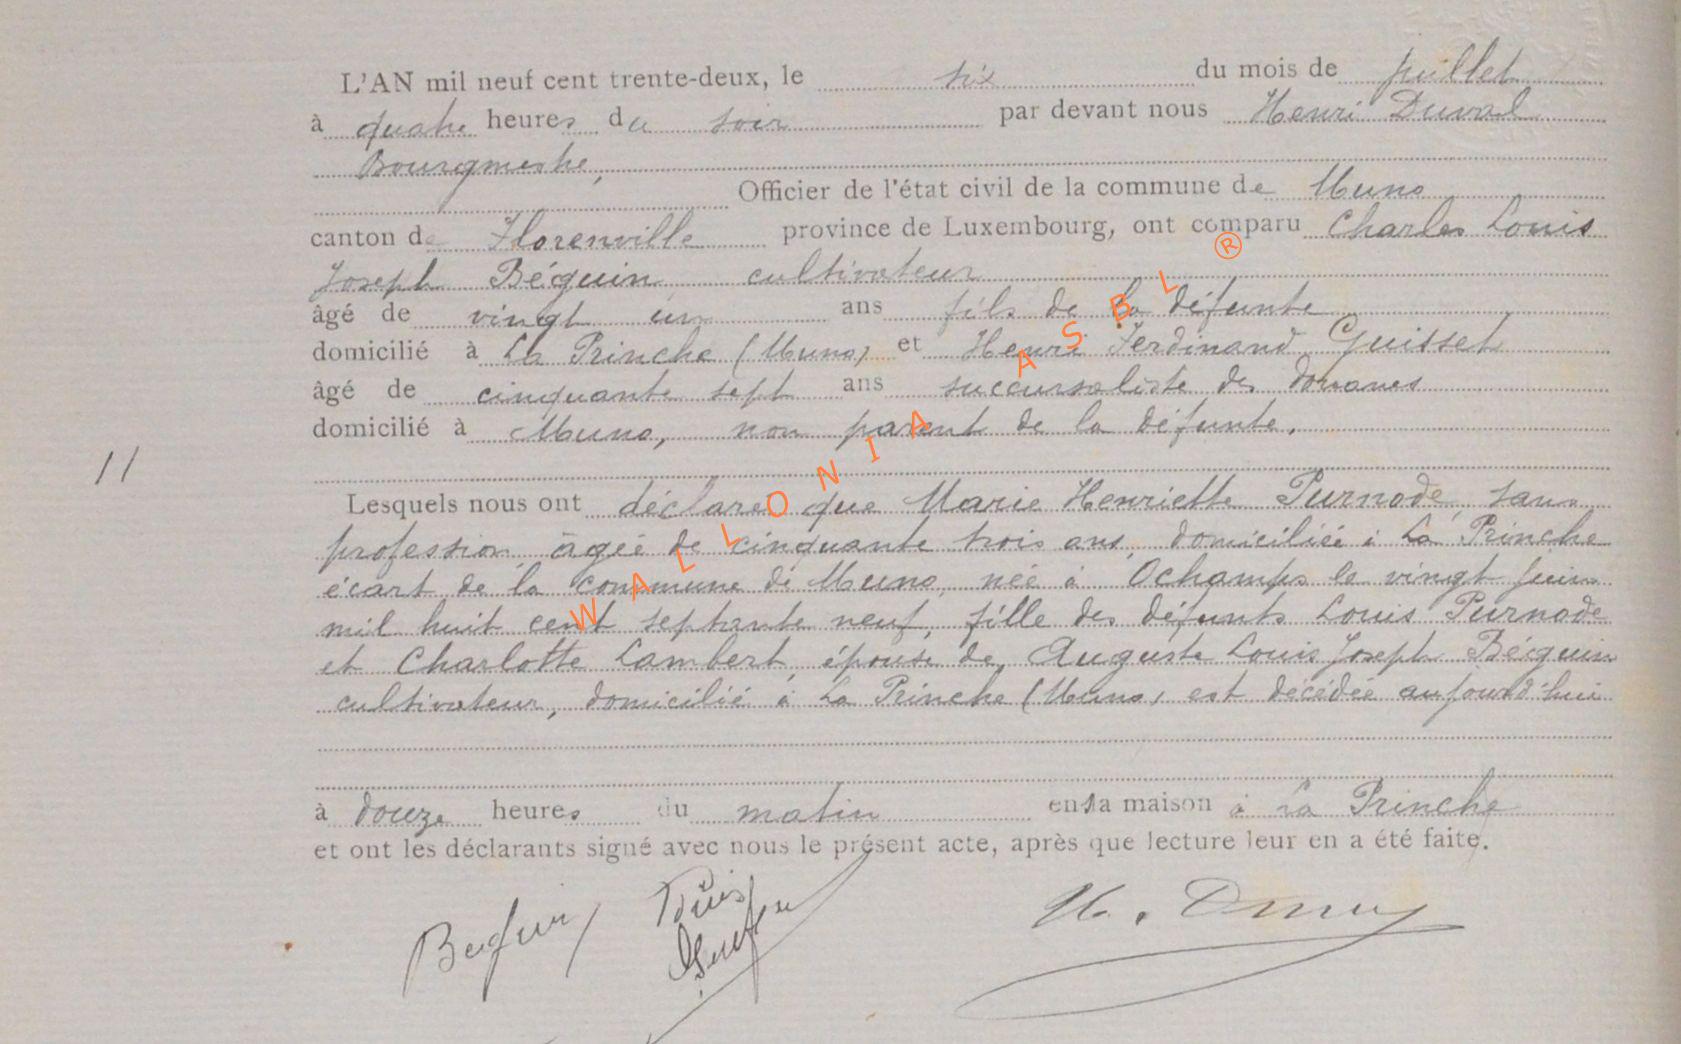 L'AN mil neuf cent trente-deux, le six du mois de juillet
à quatre heures du soir par devant nous Henri Duval
Bourgmestre,
Officier de l'état civil de la commune de Muno
canton de Florenville province de Luxembourg, ont comparu Charles Louis
Joseph Béguin, cultivateur
âgé de vingt un ans fils de la défunte
domicilié à La Prinche (Muno) et Henri Ferdinand Guisset
âgé de cinquante sept ans succursaliste des douanes
domicilié à Muno, non parent de la défunte.
11
Lesquels nous ont déclaré que Marie Henriette Purnode, sans
profession, âgée de cinquante trois ans, domiciliée à La Prinche
écart de la commune de Muno, née à Ochamps le vingt juin
mil huit cent septante neuf, fille des défunts Louis Purnode
et Charlotte Lambert, épouse de Auguste Louis Joseph Béguin
cultivateur, domicilié à La Prinche (Muno) est décédée aujourd'hui
à douze heures du matin en sa maison à La Prinche
et ont les déclarants signé avec nous le présent acte, après que lecture leur en a été faite.
WALLONIA ASBL ®